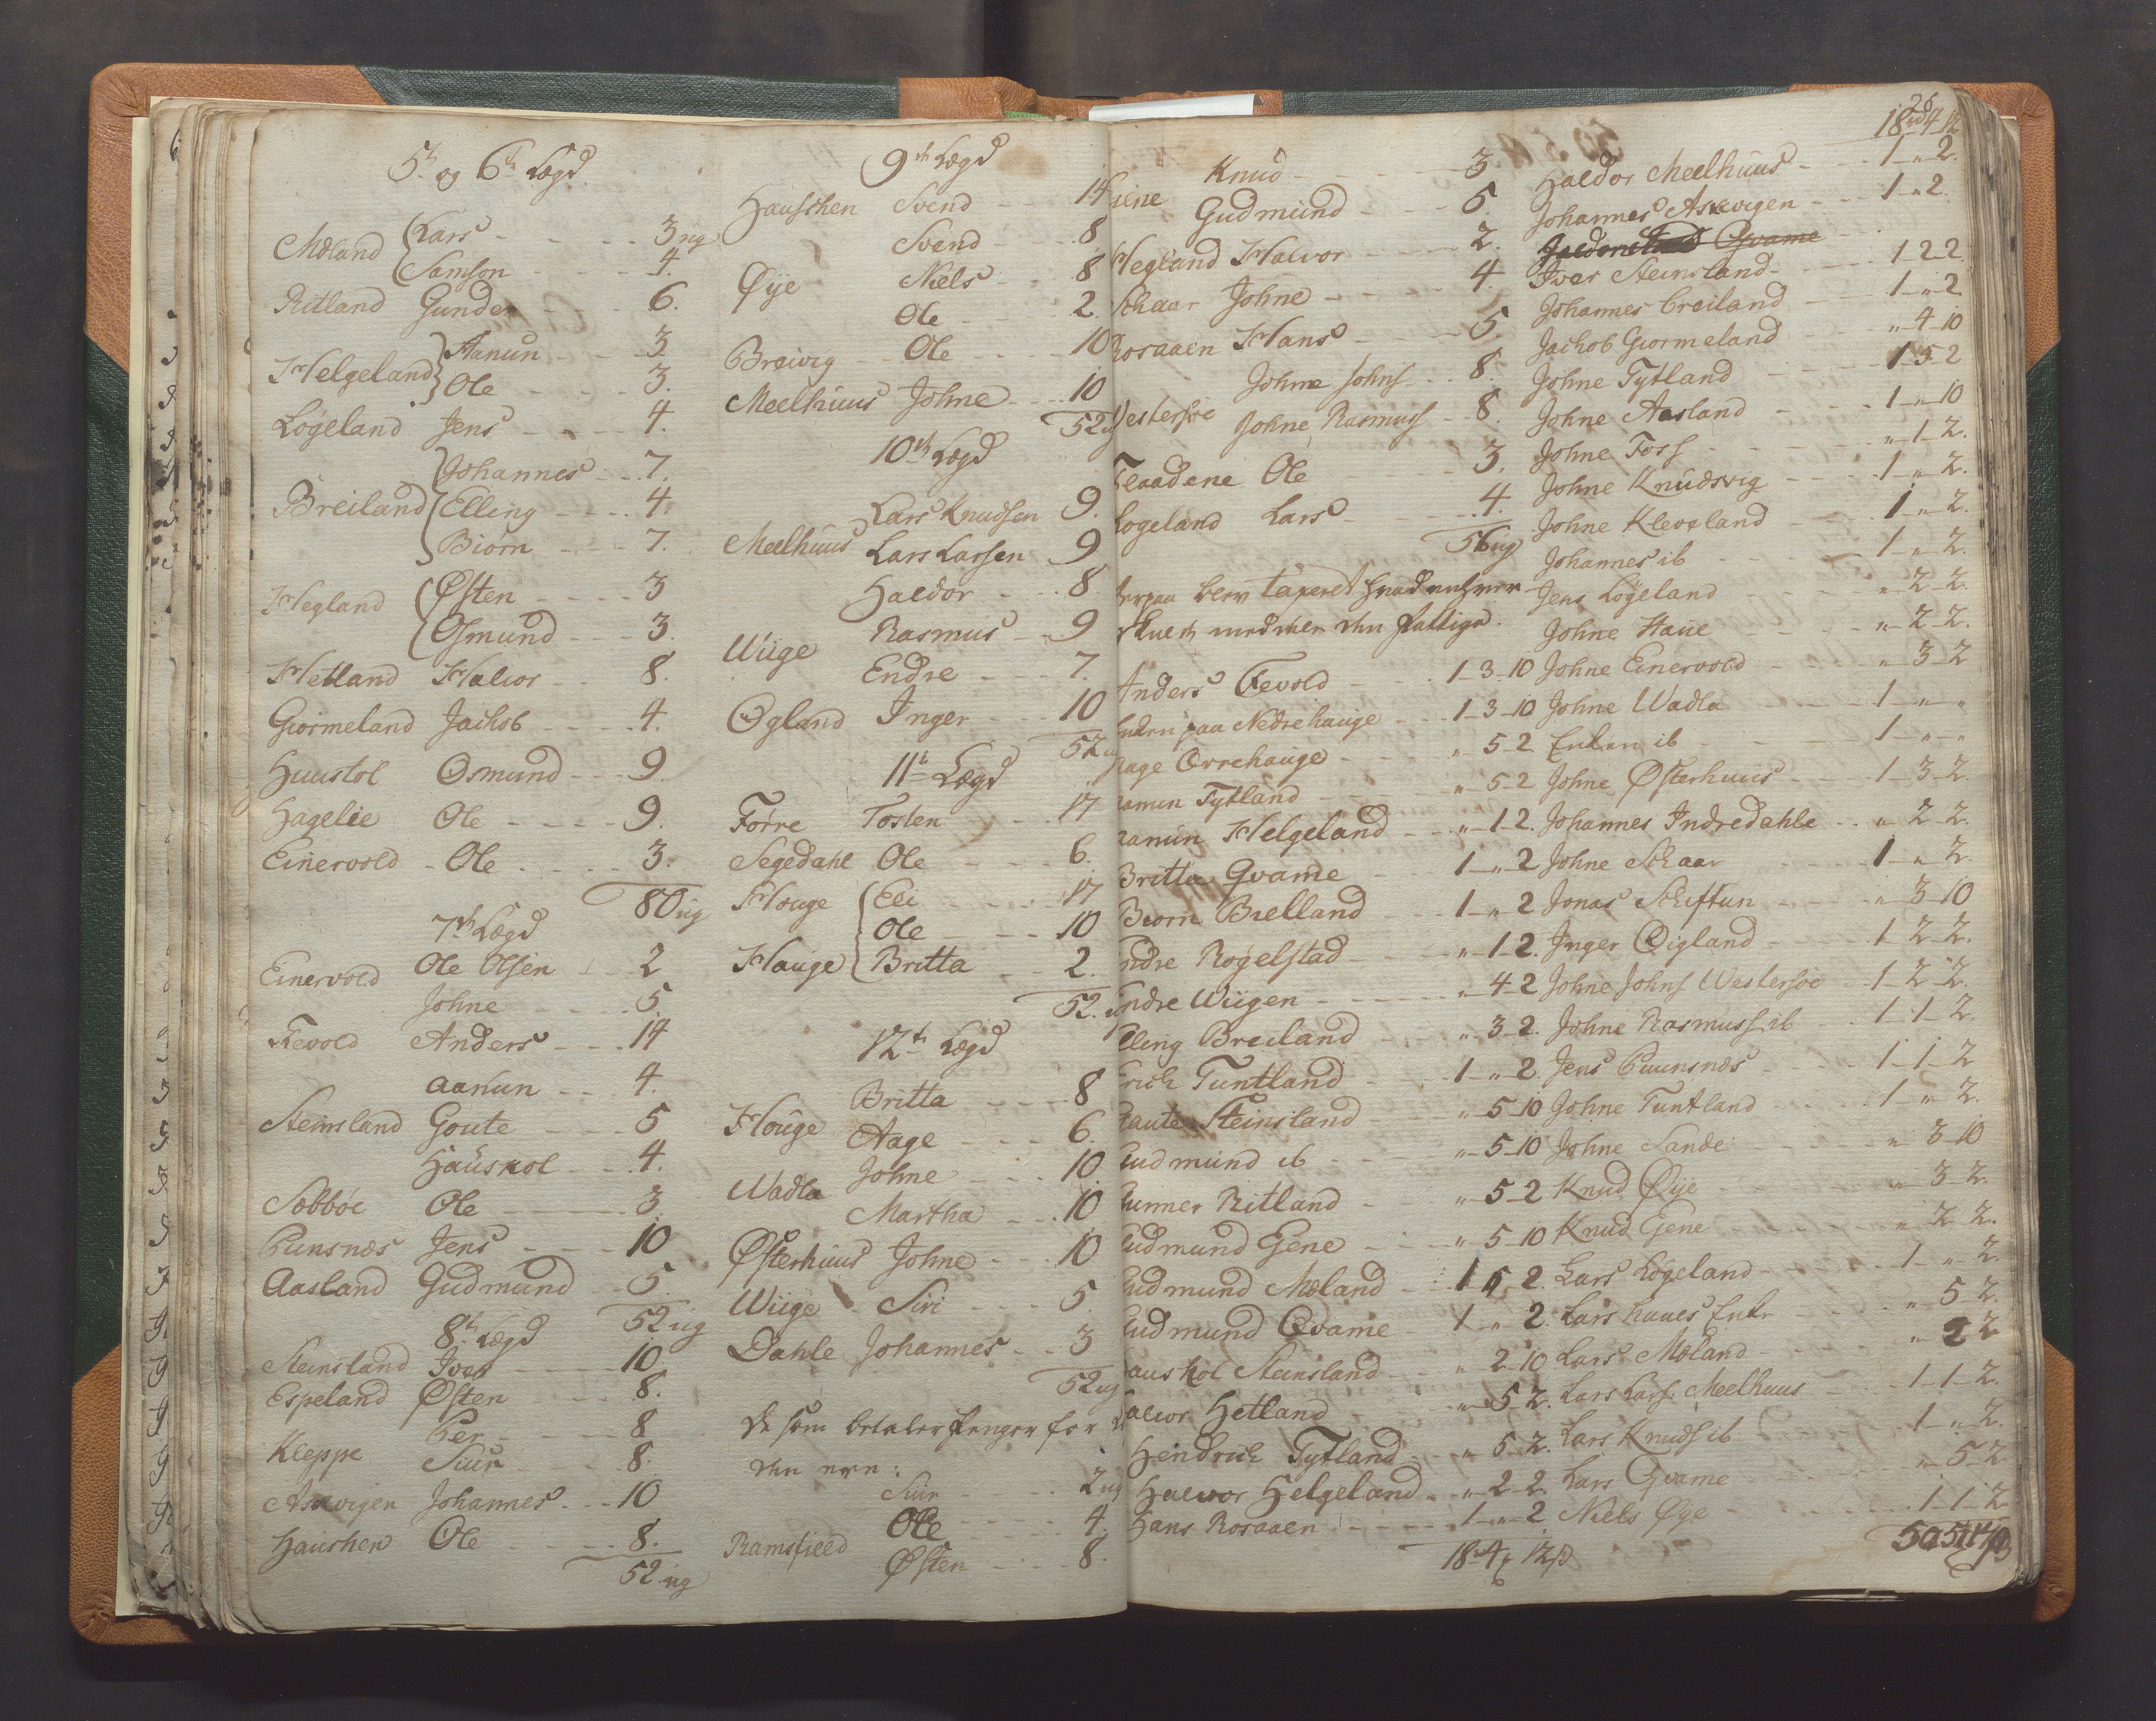 5te og 6te Lægd
Mæland Lars - - - 3 ug
Samson - - 4.
Ritland Gunder - - 6.
Helgeland Aanun - - 3
Ole - - - 3.
Løgeland Jens - - - 4.
Breiland Johannes - - 7.
Elling - - - 4.
Biørn - - - 7.
Hegland Østen - - - 3
Osmund - - 3.
Hetland Halvor - - 8.
Giormeland Jachob - - - 4.
Huustol Osmund - - 9.
Hagelie Ole - - - 9.
Einervold - Ole - - - 3.
80 ug
7de Lægd
Einervold Ole Olsen - 2
Johne - - 5.
Fevold Anders - - 14
Aanun - - 4.
Steinsland Goute - - 5
Hauskol - - 4.
Sæbbøe Ole - - - 3.
Punsnæs Jens - - - 10
Aasland Gudmund - - 5.
52 ug
8de Lægd
Steinsland Iver - - - 10
Espeland Østen - - 8.
Kleppe Per - - - 8
Siur - - - 8.
Askvigen Johannes - - 10
Haushen Ole - - - 8.
52 ug
9de Lægd
Haushen Svend - - 14
Svend - - 8
Øye Niels - - 8
Ole - - 2.
Breivig Ole - - - 10
Meelhuus Johne - - 10
52 ug
10de Lægd
Meelhuus Lars Knudsen 9.
Lars Larsen 9
Haldor - - 8
Wiige Rasmus - - 9
Endre - - 7.
Øgland Inger - - 10
52 ug
11te Lægd
Førre Tosten - - 17
Segedahl Ole - - - 6.
Houge Eli - - - 17
Ole - - - 10
Hauge Britta - - 2.
52. ug
12te Lægd
Houge Britta - - 8
Aage - - - 6.
Wadla Johne - - 10.
Martha - - 10
Østerhuus Johne - - 10
Wiige Siri - - - 5.
Dahle Johannes - - 3
52 ug
De som betaler Penger for
Ramsfield Siur - - - 2 ug
Ole - - - 4.
Østen - - 8.
Giene Knud - - - 3.
Gudmund - - - 5.
Hegland Halvor - - - 2.
Schaar Johne - - - 4.
Rosaaen Hans - - - 5.
Westersøe Johne Johns - - 8.
Johne Rasmuss - 8.
Flaadene Ole - - 3.
Løgeland Lars - - - 4.
56 ug
Anders Fevold - - 1-3-10
Enken paa Nedrehauge - - 1-3-10
Aage Øvrehauge - - „ 5-2
Aamun Tytland - - „ 5-2
Aanun Helgeland - - „ 1-2.
Britta Qvame - - 1-„-2
Biorn Brelland - - 1-„-2
Endre Røgelstad - - „ 1-2.
Endre Wiigen - - - „ 4-2
Elling Breiland - - „ 3-2.
Erich Tuntland - - 1-„-2.
Gaute Steinsland - - „ 5-10
Gudmund ib - - „ 5-10
Gunner Ritland - - „ 5-2
Gudmund Gene - - „ 5-10
Gudmund Mæland - - 1 5 2.
Gudmund Qvame - 1-„-2.
Hauskol Steinsland - - „ 2-10
Halvor Hetland - - „ 5-2.
Hendrich Tytland - - „ 5-2.
Halvor Helgeland - - „ 2-2.
Hans Rosaaen - - - 1-„-2
18 4 12 ß
26
18 rd 4 12
Haldor Meelhuus - - 1-„-2.
Johannes Askevigen - - 1-„-2.
Iver Steinsland - - 1-2-2.
Johannes Breiland - - 1-„-2
Jachob Giormeland - - „-4-10
Johne Tytland - - 1-5-2
Johne Aasland - - 1-„-10
Johne Foss - - „-1-2.
Johne Knudsvig - - 1-„-2.
Johne Kleveland - - 1-„-2.
Johannes ib - - 1-„-2.
Jens Løgeland - - „-2-2.
Johne Haue - - „-2-2.
Johne Einervold - - „-3-2
Johne Wadla - - 1-„-„
Enken ib - - 1-„-„
Johne Østerhuus - - 1-3-2.
Johannes Indredahle - - „ 2-2.
Johne Schaar - - 1-„-2.
Jonas Schiftun - - „ 3-10
Inger Øigland - - 1 2-2.
Johne Johns Westersøe - 1-2-2.
Johne Rasmuss ib - 1-1-2.
Jens Puunsnæs - - 1-1-2
Johne Tuntland - - 1-„-2.
Johne Sande - - „ 3-10
Knud Øye - - „ 3-2.
Knud Gene - - „ 2 2.
Lars Løgeland - - 1-„-2
Lars Haues Enke - - „ 5 2.
Lars Mæland - - „ 2 2
Lars Larss. Meelhuus - 1-1-2.
Lars Knuds ib - - 1-„-2.
Lars Qvame - - „-5-2
Niels Øye - - 1-1-2